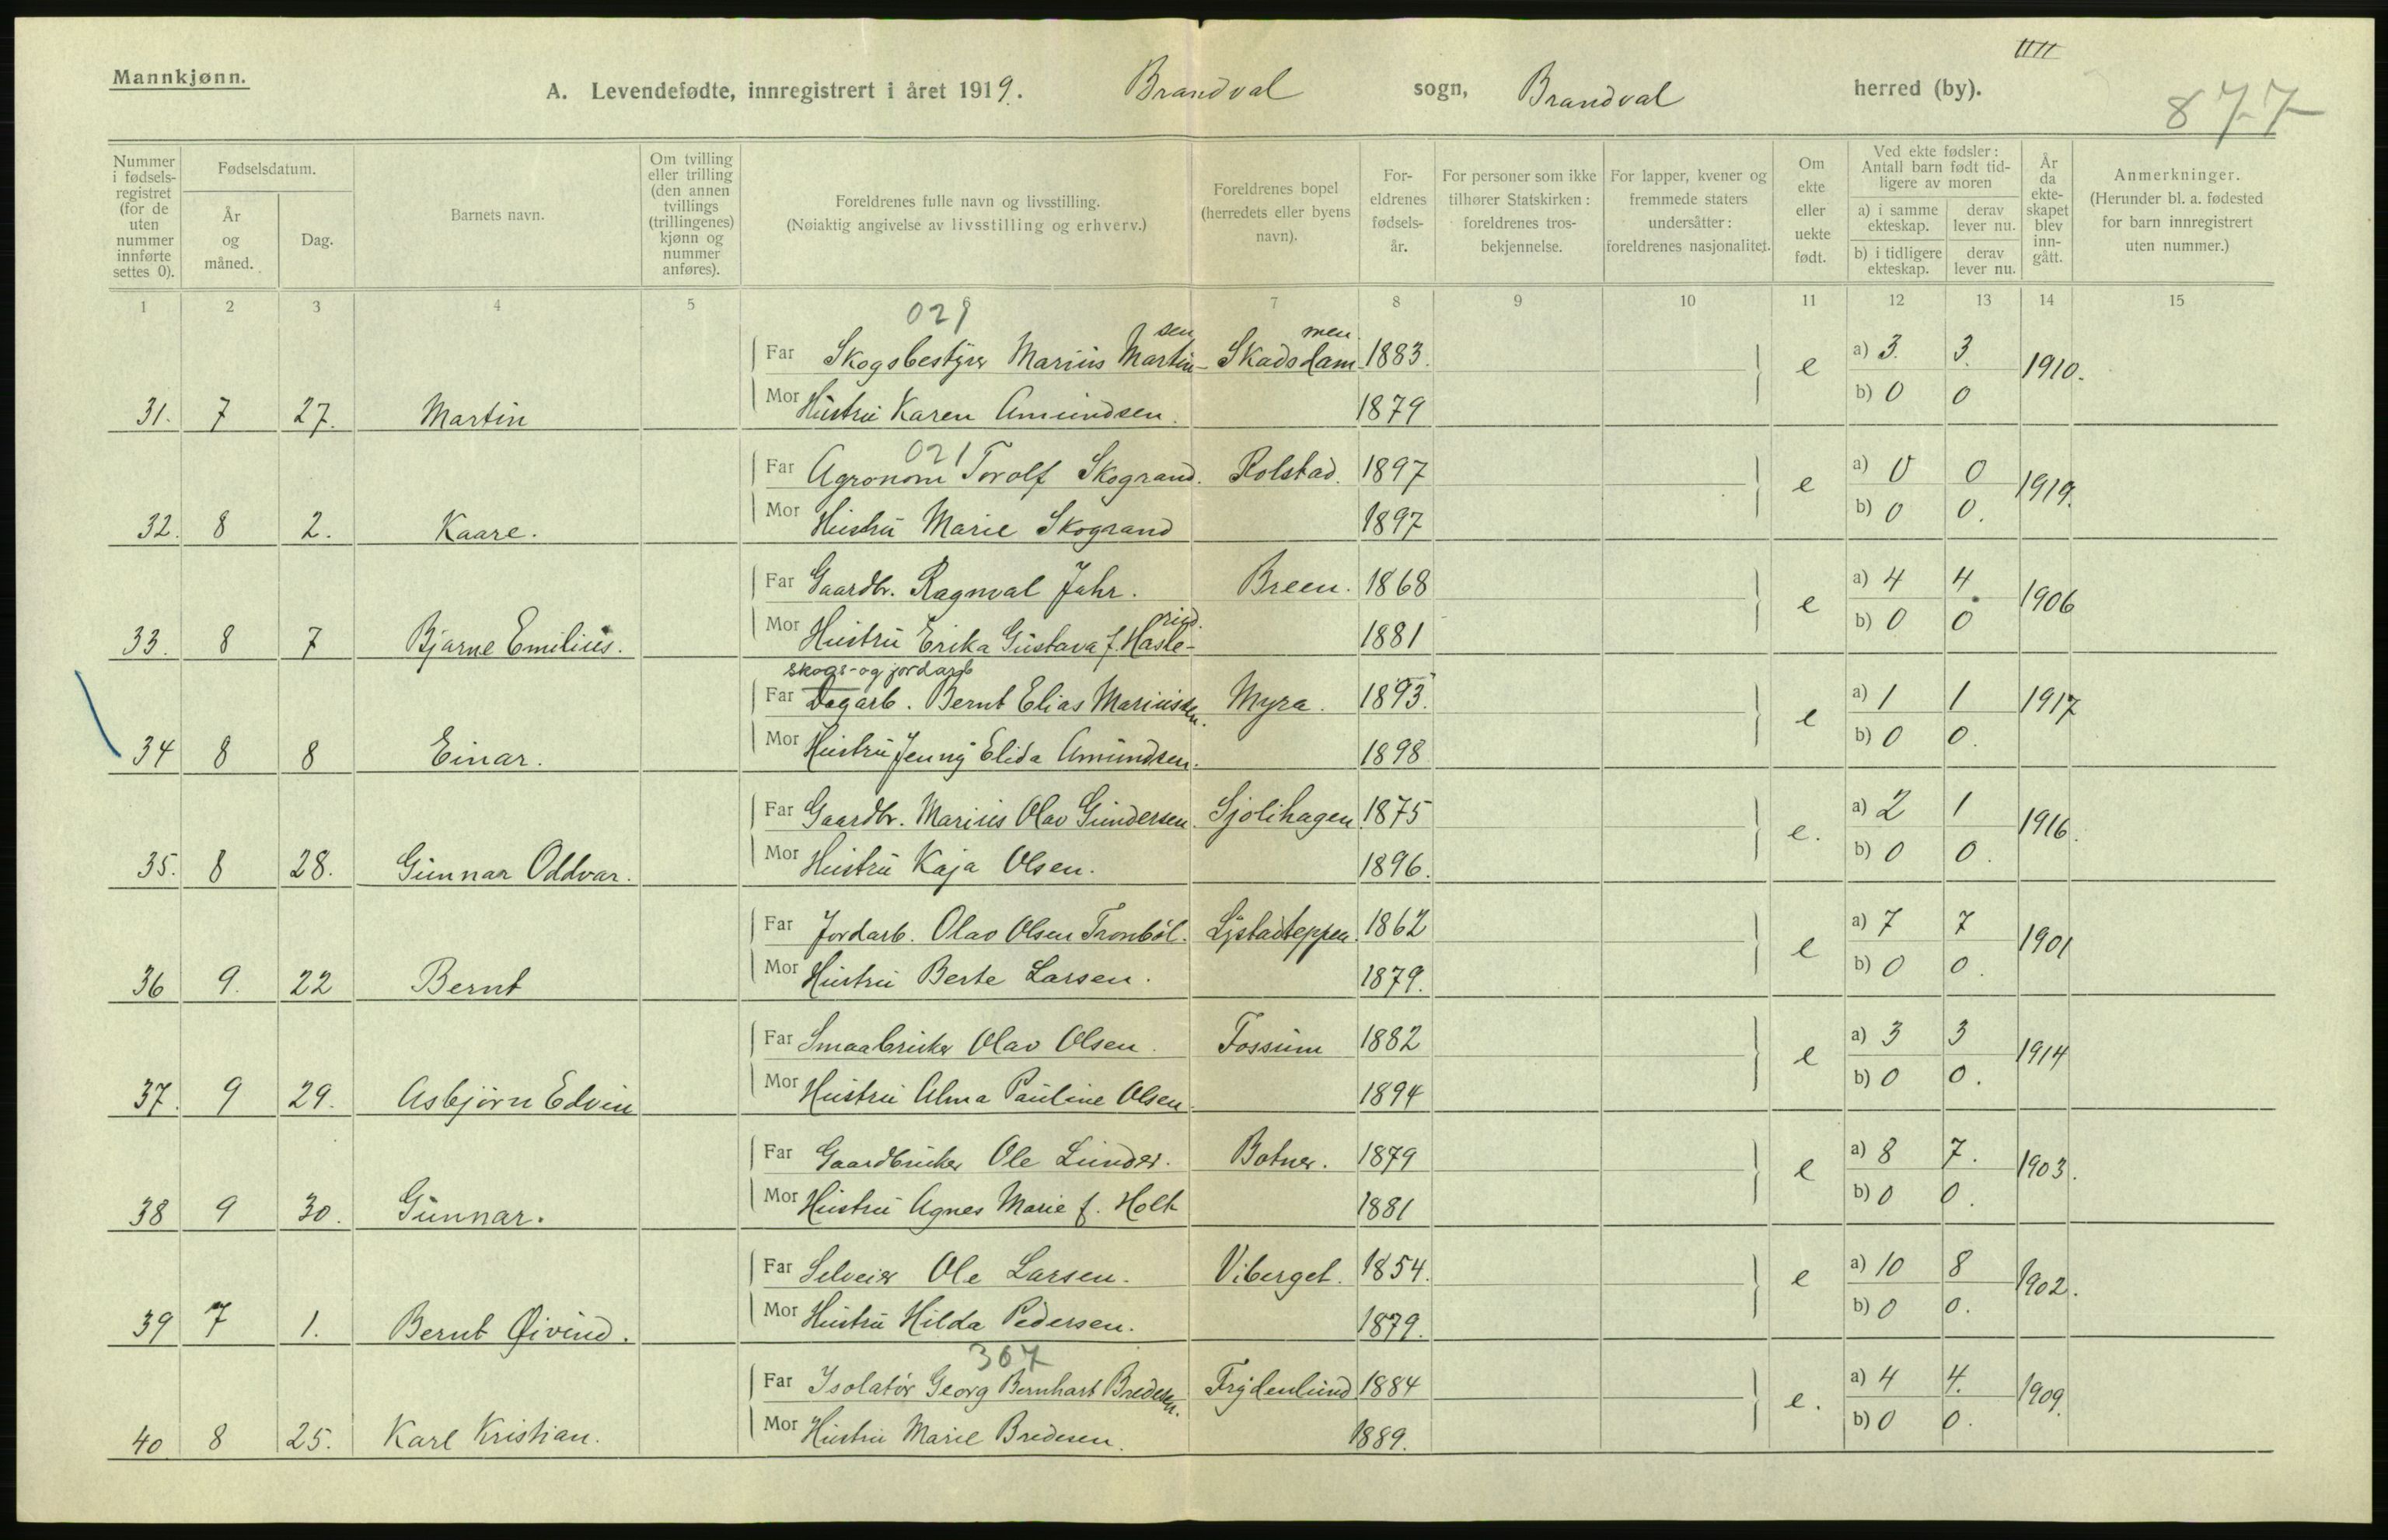 Mannkjønn.
A. Levendefødte, innregistrert i året 1919. Brandval sogn, Brandval herred (by).
877
Nummer i fødsels-registret (for de uten nummer innførte settes 0).
Fødselsdatum.
År og måned.
Dag.
Barnets navn.
Om tvilling eller trilling (den annen tvillings (trillingenes) kjønn og nummer anføres).
Foreldrenes fulle navn og livsstilling.
(Nøiaktig angivelse av livsstilling og erhverv.)
Foreldrenes bopel (herredets eller byens navn).
For-eldrenes fødsels-år.
For personer som ikke tilhører Statskirken: foreldrenes tros-bekjennelse.
For lapper, kvener og fremmede staters undersåtter: foreldrenes nasjonalitet.
Om ekte eller uekte født.
Ved ekte fødsler: Antall barn født tid-ligere av moren
a) i samme ekteskap. derav lever nu.
b) i tidligere ekteskap. derav lever nu.
År da ekte-skapet blev inn-gått.
Anmerkninger.
(Herunder bl. a. fødested for barn innregistrert uten nummer.)
1 2 3 4 5 6 7 8 9 10 11 12 13 14 15
029
Far Skogsbestyrer Marius Martin-sen Skadsdam-men 1883. e a) 3. 3. 1910.
31. 7 27. Martin Mor Hustru Karen Amundsen. 1879 b) 0 0
021
Far Agronom Torolf Skogrand. Rolstad. 1897 e a) 0 0 1919.
32. 8 2. Kaare. Mor Hustru Marie Skogrand 1897 b) 0 0.
Far Gaardbr. Ragnval Jahr. Breen. 1868 e a) 4 4 1906
33. 8 7 Bjarne Emilius. Mor Hustru Erika Gustava f. Hasle-rud. 1881 b) 0 0
skogs- og jordarb
Far Dagarb. Bernt Elias Mariussen. Myra. 1893. e a) 1 1 1917
34 8 8 Einar. Mor Hustru Jenny Elida Amundsen. 1898 b) 0 0.
Far Gaardbr. Marius Olav Gundersen. Sjolihagen 1875 e. a) 2 1 1916.
35. 8 28. Gunnar Oddvar. Mor Hustru Kaja Olsen. 1896. b) 0 0.
Far Jordarb. Olav Olsen Tronbøl. Lystadteppen. 1862 e a) 7 7 1901
36 9. 22 Bernt Mor Hustru Berte Larsen. 1879. b) 0 0.
Far Smaabruker Olav Olsen. Fossum 1882 e a) 3 3 1914
37. 9 29. Asbjørn Edvin Mor Hustru Alma Pauline Olsen. 1894 b) 0 0.
Far Gaardbruker Ole Lunder. Botner. 1879 e a) 8 7. 1903.
38 9 30. Gunnar. Mor Hustru Agnes Marie f. Holt 1881 b) 0 0.
Far Selveier Ole Larsen. Viberget. 1854. e a) 10 8 1902.
39 7 1. Bernt Øivind. Mor Hustru Hilda Pedersen. 1879. b) 0 0.
307
Far Isolatør Georg Bernhart Bredesen. Frydenlund 1884 e. a) 4 4. 1909.
40. 8 25. Karl Kristian. Mor Hustru Marie Bredesen. 1889. b) 0 0.